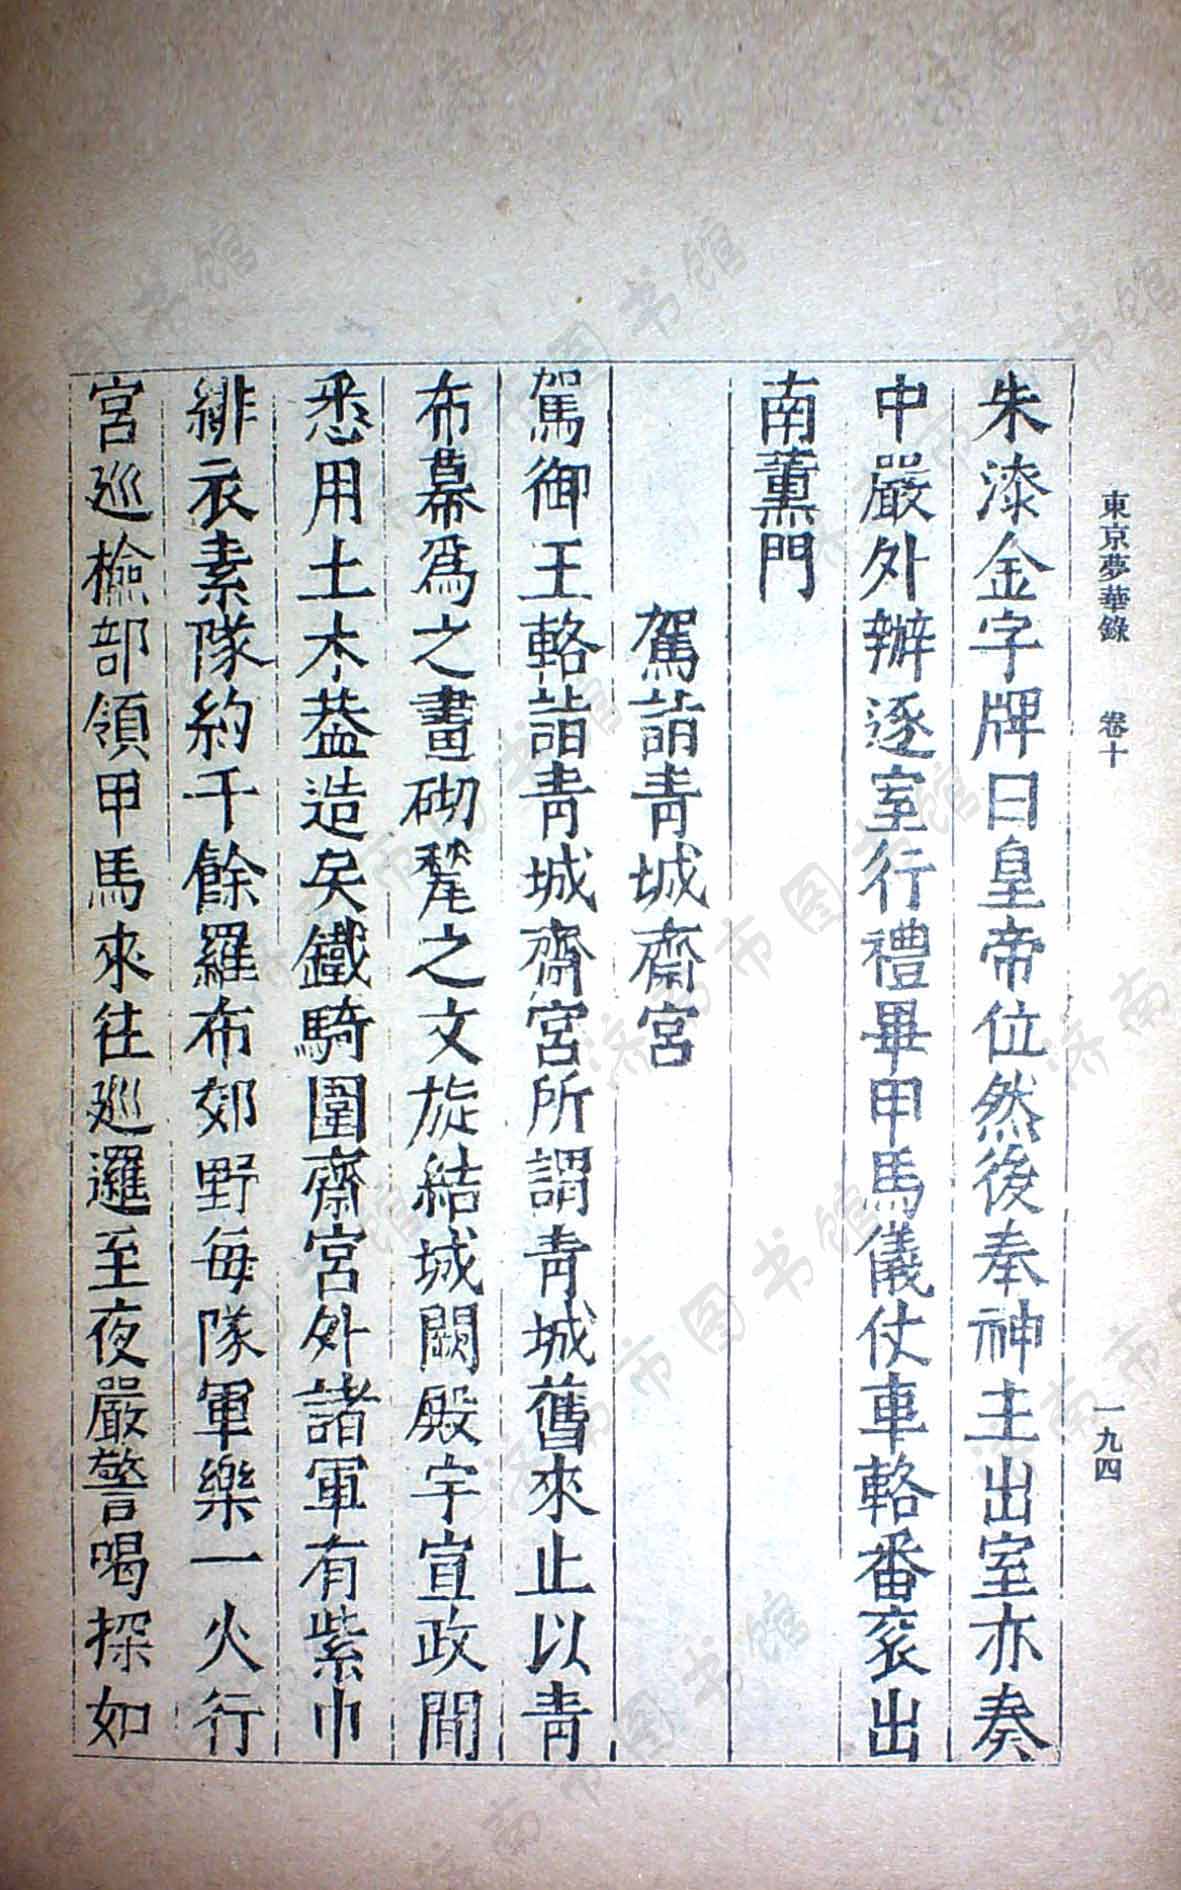 東京夢華錄 卷十 一九四
朱漆金字牌曰皇帝位然後奉神主出室亦奏
中嚴外辦逐室行禮畢甲馬儀仗車輅番袞出
南薰門
駕詣青城齋宮
駕御王輅詣青城齋宮所謂青城舊來止以青
布幕爲之畫砌甃之文旋結城闕殿宇宣政間
悉用土木葢造矣鐵騎圍齋宮外諸軍有紫巾
緋衣素隊約千餘羅布郊野每隊軍樂一火行
宮巡檢部領甲馬來往巡邏至夜嚴警喝探如
济南市图书馆